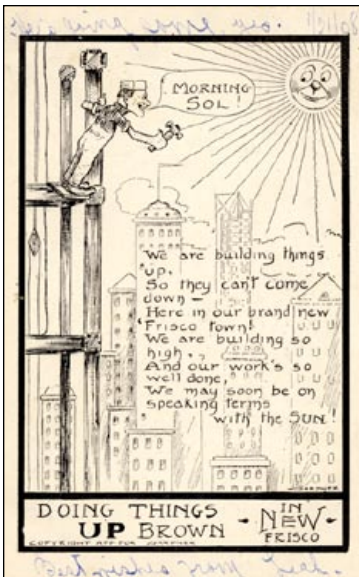 MORNING
SOL!
We are building things
up,
So they can't come
down —
Here in our brand new
'Frisco town!
We are building so
high,
And our work's so
well done,
We may soon be on
speaking terms
with the SUN!
DOING THINGS
UP BROWN
IN
NEW
FRISCO
COPYRIGHT APP FOR
Best wishes from